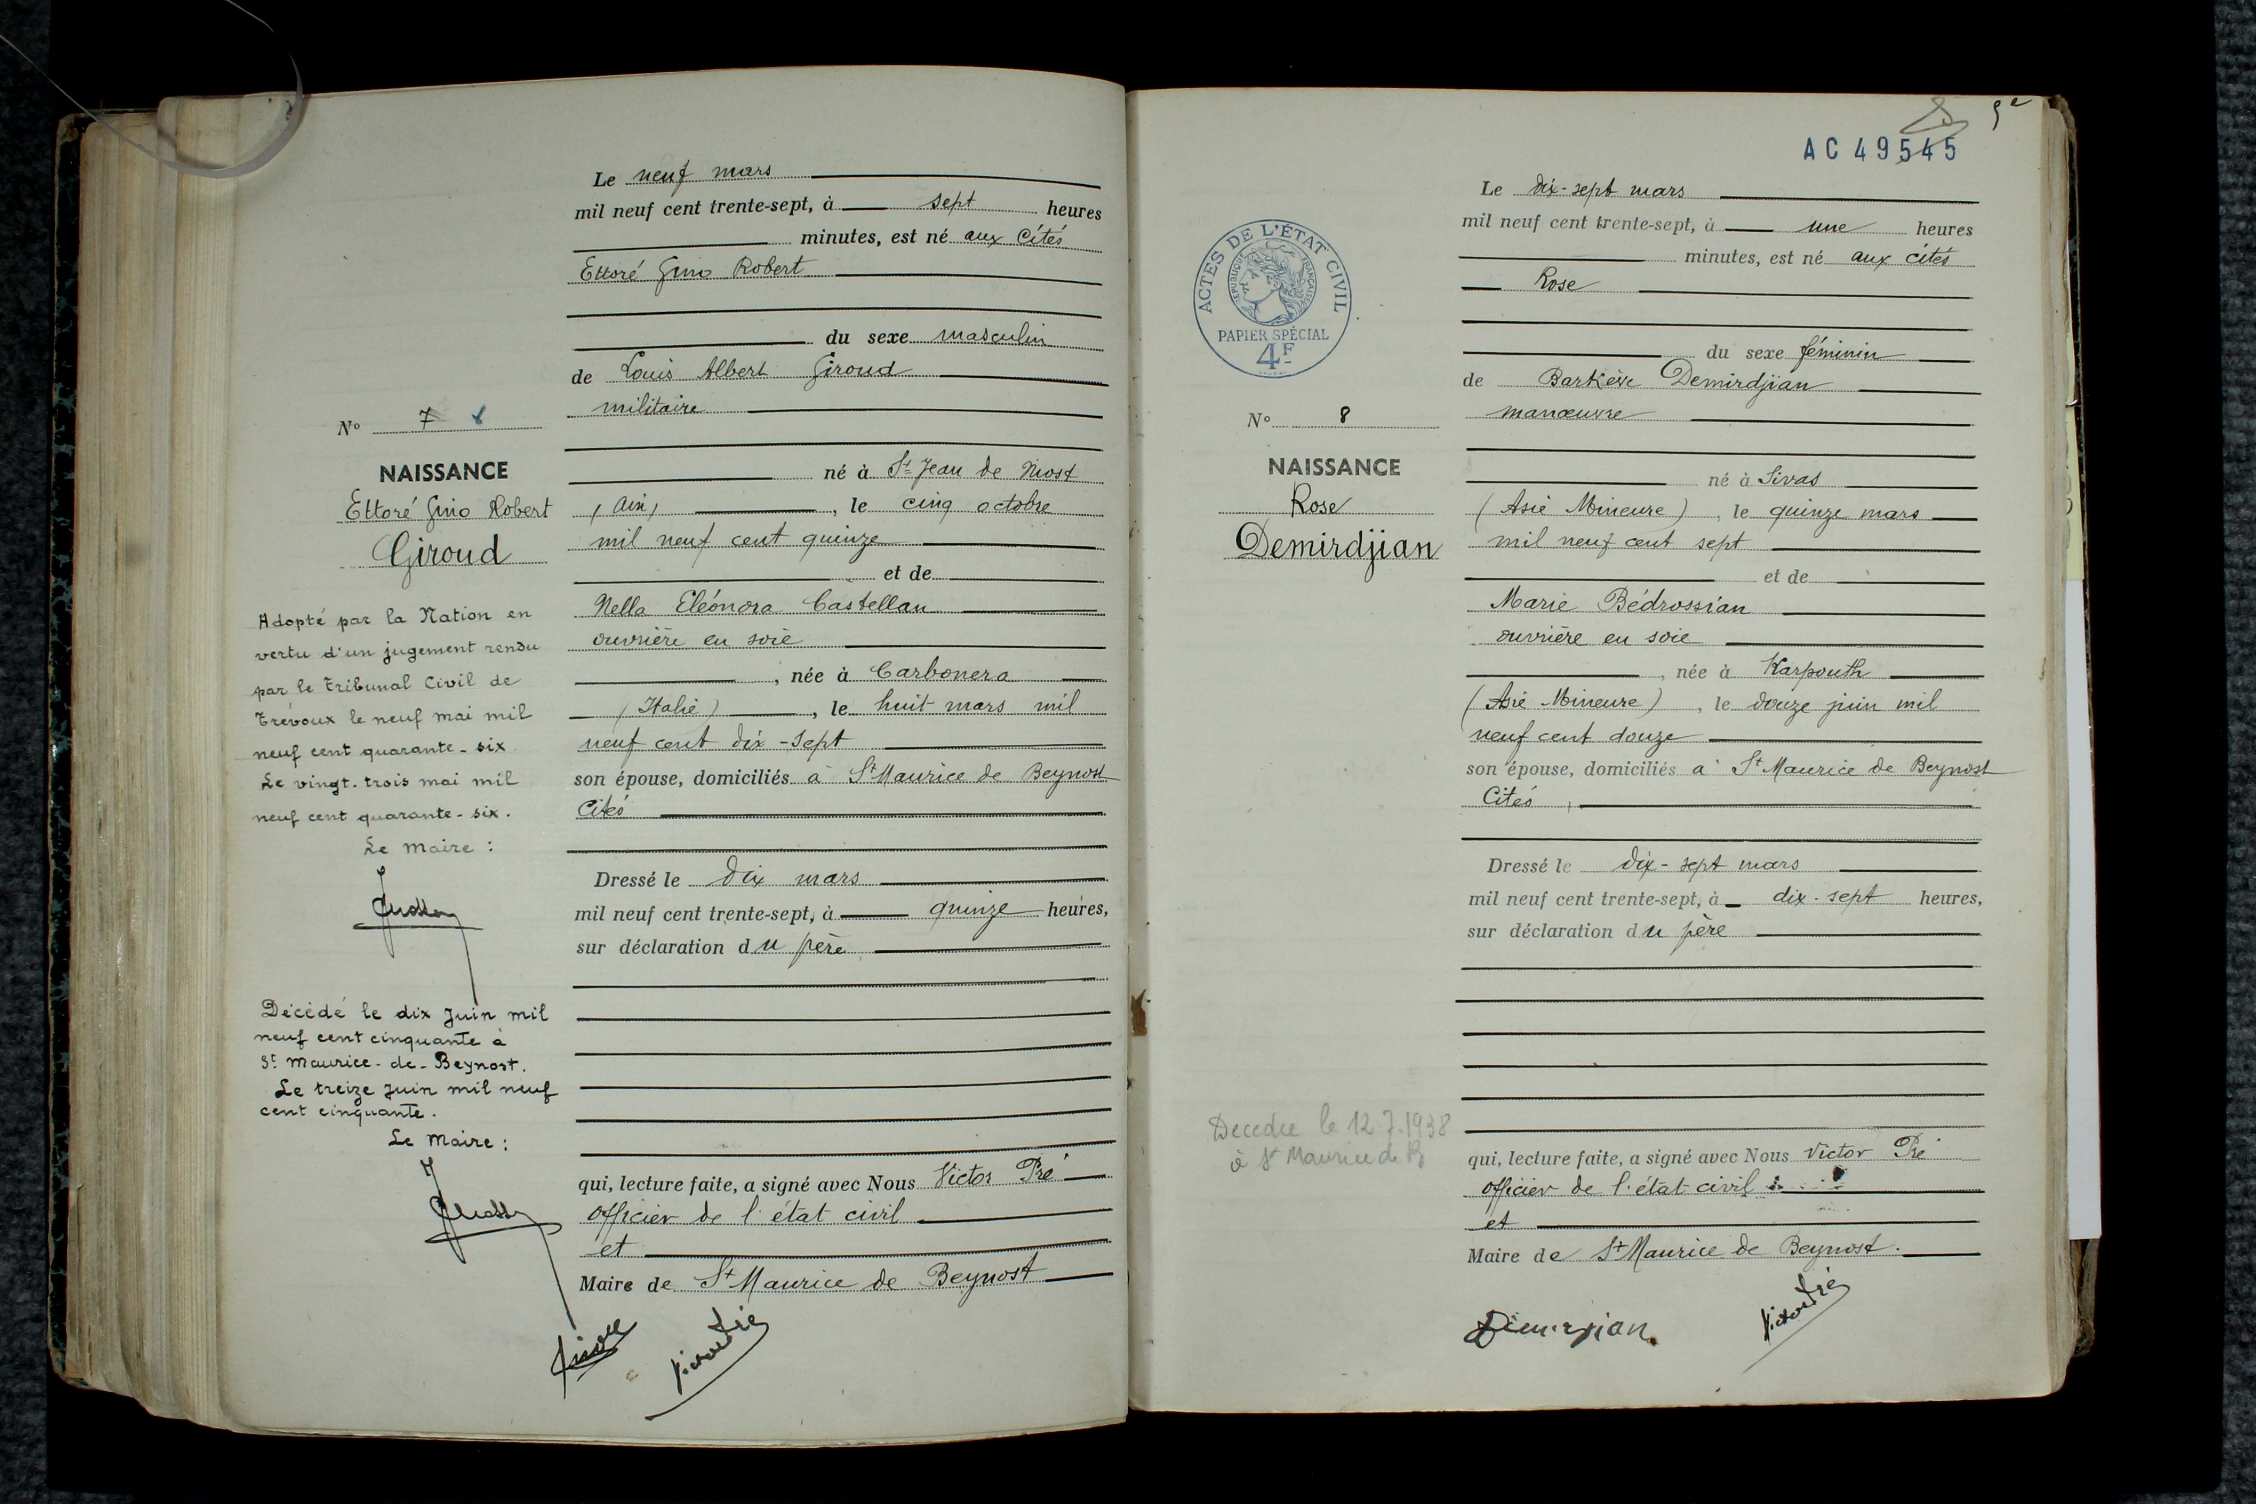 Le neuf mars
mil neuf cent trente-sept, à sept heures
minutes, est né aux cités
Ettoré Gino Robert
du sexe masculin
de Louis Albert Giroud
militaire
né à St Jean de Niost
(Ain), le cinq octobre
mil neuf cent quinze
et de
Nella Eléonora Castellan
ouvrière en soie
, née à Carbonera
(Italie), le huit mars mil
neuf cent dix-sept
son épouse, domiciliés à St Maurice de Beynost
Cités
Dressé le dix mars
mil neuf cent trente-sept, à quinze heures,
sur déclaration du père
qui, lecture faite, a signé avec Nous Victor Pré
officier de l'état civil
et
Maire de St Maurice de Beynost
No 7
NAISSANCE
Ettoré Gino Robert
Giroud
Adopté par la Nation en
vertu d'un jugement rendu
par le Tribunal Civil de
Trévoux le neuf mai mil
neuf cent quarante-six
Le vingt-trois mai mil
neuf cent quarante-six.
Le Maire :
Décédé le dix Juin mil
neuf cent cinquante à
St Maurice-de-Beynost.
Le treize Juin mil neuf
cent cinquante.
Le Maire :
AC 49545
ACTES DE L'ÉTAT CIVIL
RÉPUBLIQUE FRANÇAISE
PAPIER SPÉCIAL
4F
No 8
NAISSANCE
Rose
Demirdjian
Décédée le 12.7.1938
à St Maurice de B
Le dix-sept mars
mil neuf cent trente-sept, à une heures
minutes, est né aux cités
Rose
du sexe féminin
de Barkève Demirdjian
manœuvre
né à Sivas
(Asie Mineure), le quinze mars
mil neuf cent sept
et de
Marie Bédrossian
ouvrière en soie
, née à Karpouth
(Asie Mineure), le douze juin mil
neuf cent douze
son épouse, domiciliés à St Maurice de Beynost
Cités,
Dressé le dix-sept mars
mil neuf cent trente-sept, à dix-sept heures,
sur déclaration du père
qui, lecture faite, a signé avec Nous Victor Pré
officier de l'état civil
et
Maire de St Maurice de Beynost.